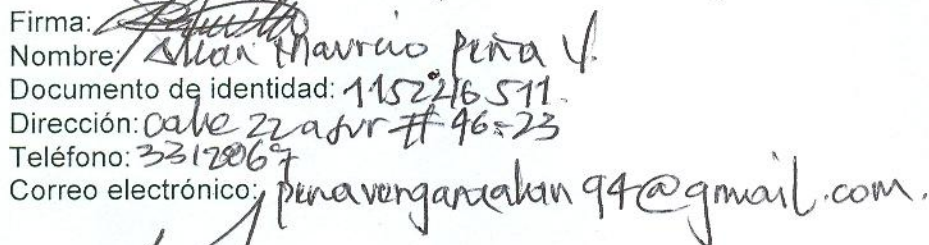 Firma:
Nombre: Allan Mauricio Peña V.
Documento de identidad: 1152216511.
Dirección: Calle 22a sur # 46-23
Teléfono: 3312867
Correo electrónico: penavergaraalan94@gmail.com.